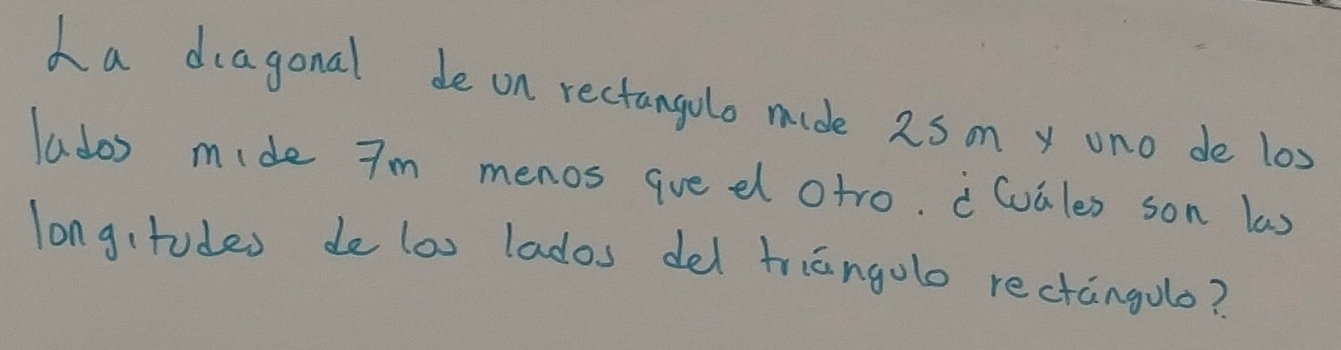 La diagonal de un rectangulo mide 25 m y uno de los
lados mide 7m menos que el otro. ¿Cuáles son las
longitudes de los lados del triángulo rectángulo?